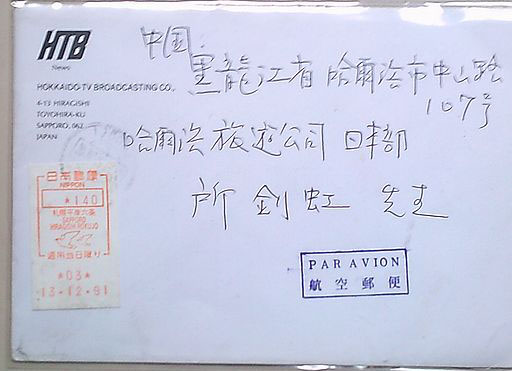 HTB
News
HOKKAIDO TV BROADCASTING CO.,
4-13 HIRAGISHI
TOYOHIRA-KU
SAPPORO, 062
JAPAN
中国
黑龍江省 哈爾浜市中山路
107号
哈爾浜旅遊公司 日本部
所 剣虹 先生
日本郵便
NIPPON
*140
札幌平岸六条
SAPPORO
HIRAGISHI ROKUJO
適用当日限り
*03*
13.12.91
PAR AVION
航空郵便